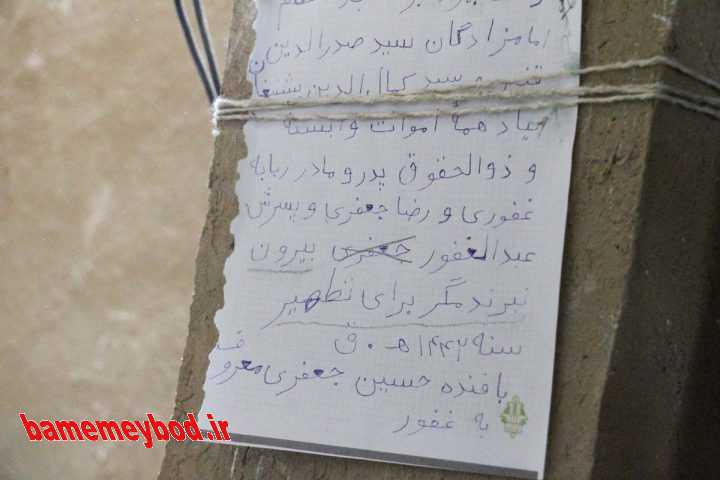 امامزادگان سید صدرالدین
و سید کمال الدین
بیاد همهٔ اموات وابسته
و ذوالحقوق پدر و مادر ربابه
غفوری و رضا جعفری و پسرش
عبدالغفور جعفری بیرون
نبرند مگر برای تطهیر
سنه ۱۴۴۲ ه‍.ق
بافنده حسین جعفری معروف
به غفور
bamemeybod.ir